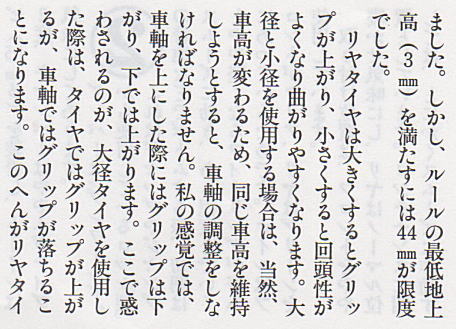 ました。しかし、ルールの最低地上
高(3㎜)を満たすには44㎜が限度
でした。
　リヤタイヤは大きくするとグリッ
プが上がり、小さくすると回頭性が
よくなり曲がりやすくなります。大
径と小径を使用する場合は、当然、
車高が変わるため、同じ車高を維持
しようとすると、車軸の調整をしな
ければなりません。私の感覚では、
車軸を上にした際にはグリップは下
がり、下では上がります。ここで惑
わされるのが、大径タイヤを使用し
た際は、タイヤではグリップが上が
るが、車軸ではグリップが落ちるこ
とになります。このへんがリヤタイ